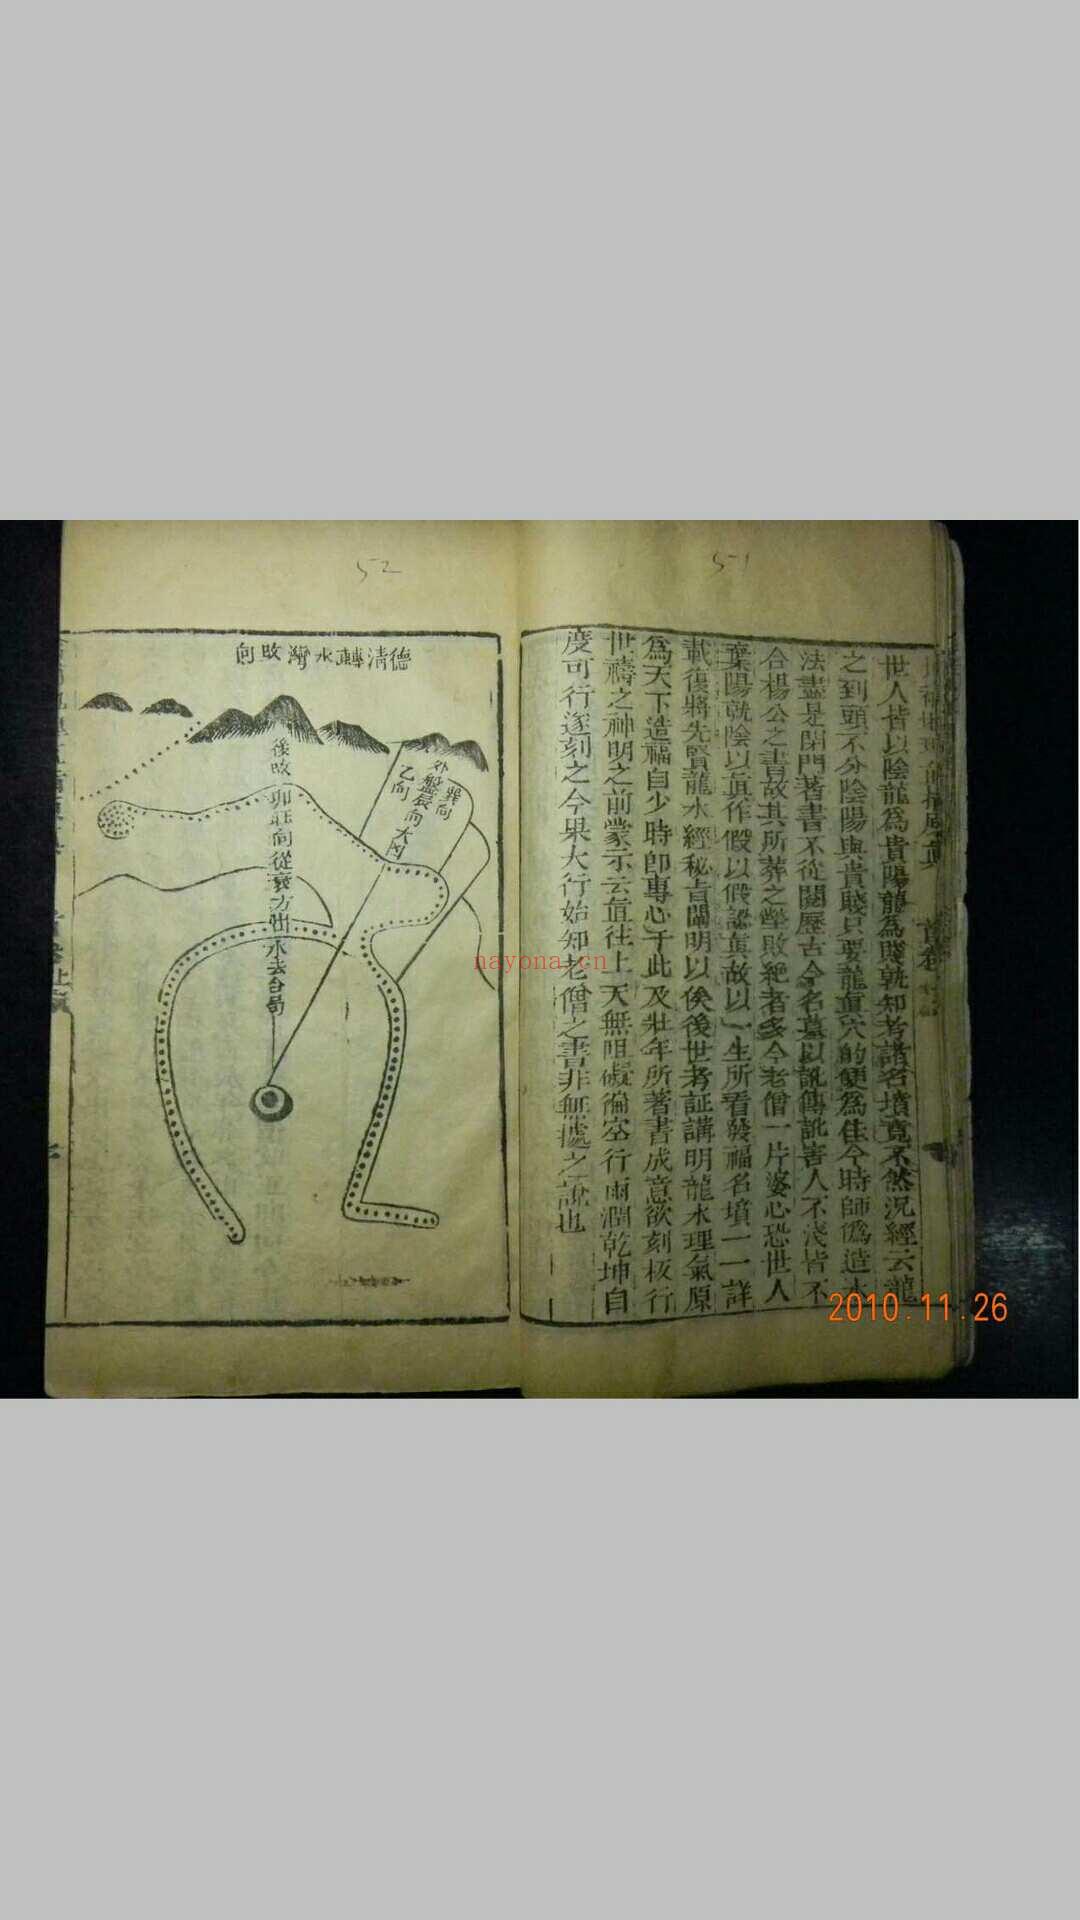 51
世人皆以陰龍為貴陽龍為賤孰知考諸名墳竟不然況經云龍
之到頭不分陰陽與貴賤只要龍眞穴的便為佳今時師僞造水
法盡是閉門著書不從閱歷古今名墓以訛傳訛害人不淺皆不
合楊公之書故其所葬之塋敗絕者多今老僧一片婆心恐世人
棄陽就陰以眞作假以假認眞故以一生所看發福名墳一一詳
載復將先賢龍水經秘旨闡明以俟後世考証講明龍水理氣原
為天下造福自少時卽專心于此及壯年所著書成意欲刻板行
世禱之神明之前蒙示云直往上天無阻礙
空行雨潤乾坤自
度可行遂刻之今果大行始知老僧之書非無據之說也
52
德清轉水灣改向
巽向
外盤辰向大凶
乙向
後改卯莊向從衰方出水去合局
nayona.cn
2010.11.26